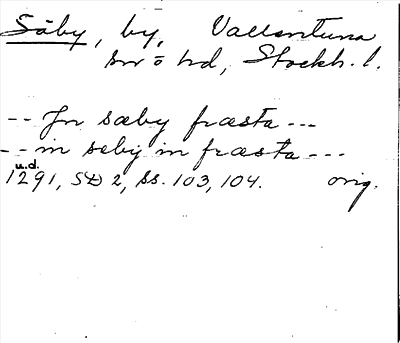 Säby, by, Vallentuna
sn o hd, Stockh. l.
-- Jn sæby fræsta ---
-- in seby in fræsta ---
u.d.
1291, SD 2, ss. 103, 104. orig.